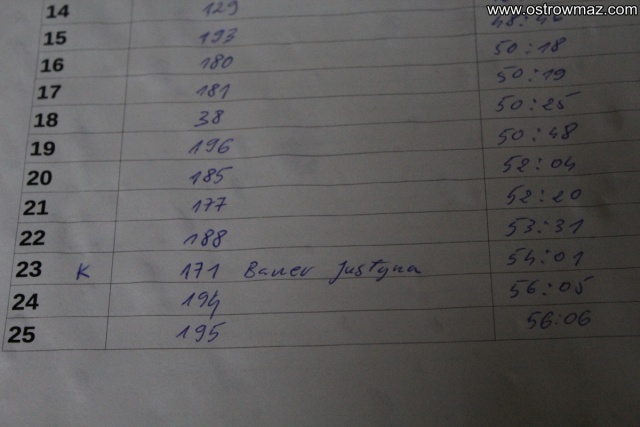 www.ostrowmaz.com
14 129
15 193
16 180 50:18
17 181 50:19
18 38 50:25
19 196 50:48
20 185 52:04
21 177 52:20
22 188 53:31
23 K 171 Bauer Justyna 54:01
24 194 56:05
25 195 56:06